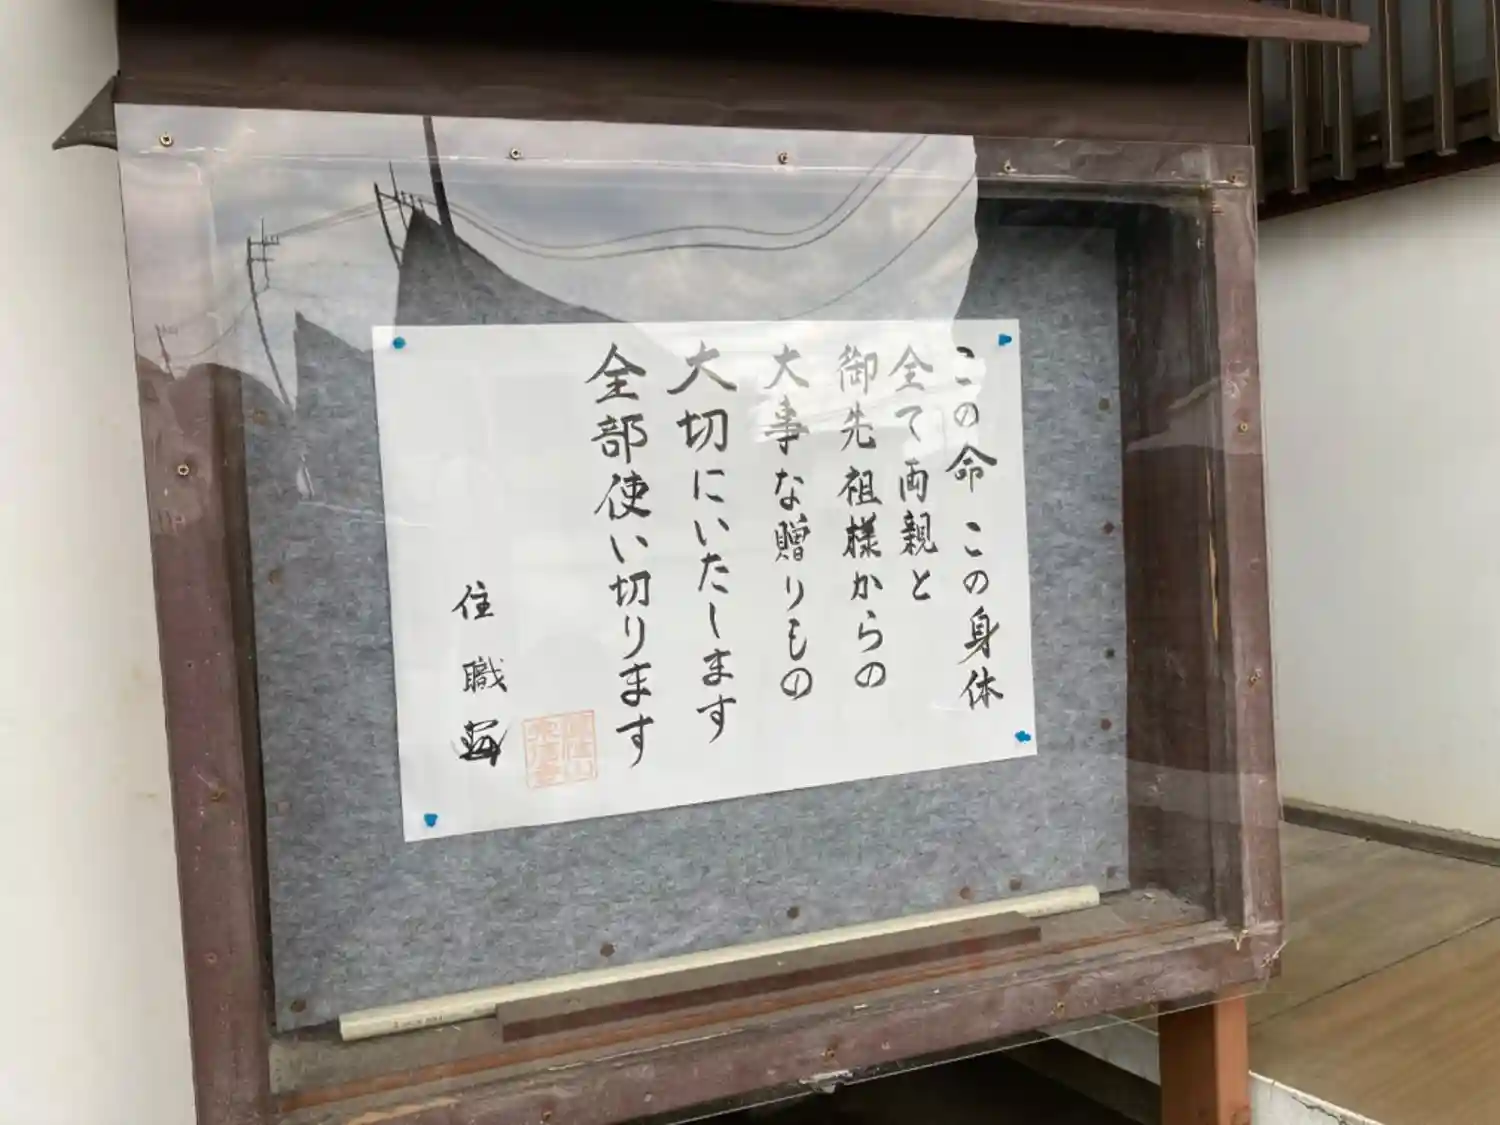 この命 この身体
全て両親と
御先祖様からの
大事な贈りもの
大切にいたします
全部使い切ります
住職